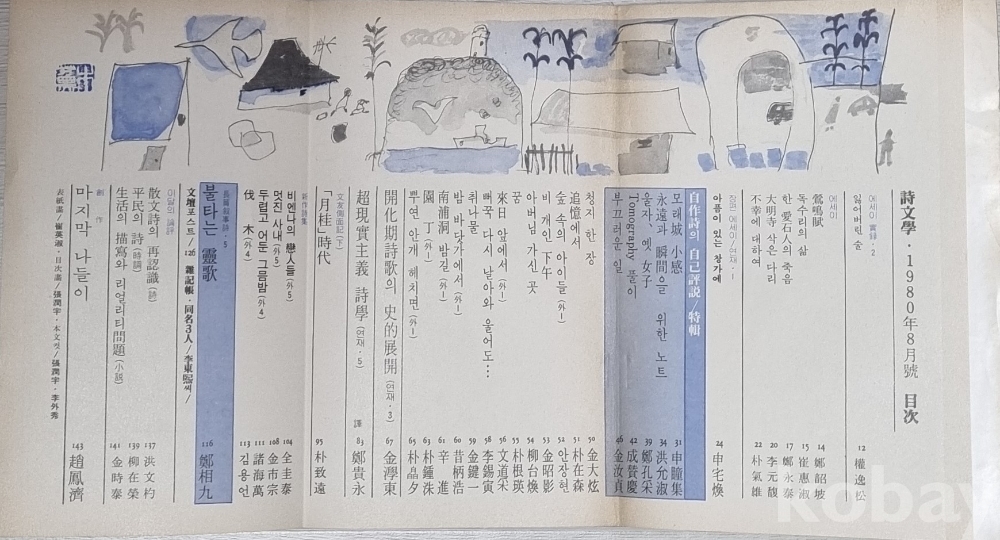 詩文學 · 1980年 8月號 目次
에세이 實録 · 2
잃어버린 술 12 權逸松
에세이
鶯鳴賦 14 鄭韶坡
독수리의 삶 15 崔惠淑
한 愛石人의 죽음 17 鄭永泰
大明寺 삭은 다리 20 李元馥
不幸에 대하여 22 朴氣雄
長篇 에세이/연재 · 1
아픔이 있는 창가에 24 申宅煥
自作詩의 自己評説/特輯
모래城 小感 31 申瞳集
永遠과 瞬間을 위한 노트 34 洪允淑
울자, 옛 女子 39 鄭孔采
Tomography 풀이 42 成贊慶
부끄러운 일 46 金汝貞
청지 한 장 50 金大炫
追憶에서 51 朴在森
숲 속의 아이들 (外1) 52 안장현
비 개인 下午 53 金昭影
아버님 가신 곳 54 柳台煥
꿈 55 朴根瑛
來日 앞에서 (外1) 56 文道采
뻐꾹 다시 날아와 울어도… 58 李錫寅
취나물 59 金鍵一
밤 바닷가에서 (外1) 60 昔柄浩
南浦洞 밤길 (外1) 61 辛進
園丁 (外1) 63 朴鍾洙
뿌연 안개 헤치면 (外1) 65 朴晶夕
開化期詩歌의 史的展開 (연재 · 3) 67 金澤東
超現實主義 詩學 (연재 · 5) 譯 83 鄭貴永
文友側面記 (下)
「月桂」時代 95 朴致遠
新作詩集
비엔나의 戀人들 (外5) 104 全圭泰
멋진 사내 (外5) 108 金市宗
두렵고 어둔 그믐밤 (外4) 111 諸海萬
伐木 (外4) 113 김용언
長篇敍事詩 · 5
불타는 靈歌 116 鄭相九
文壇포스트/126 雜記帳 · 同名3人/李東熙씨/
이달의 論評
散文詩의 再認識 (詩) 137 洪文杓
平民의 詩 (時論) 139 柳在榮
生活의 描寫와 리얼리티問題 (小説) 141 金時泰
創作
마지막 나들이 143 趙鳳濟
表紙畵/崔英淑 · 目次畵/張潤宇 · 本文컷/張潤宇 · 李外秀
kobay